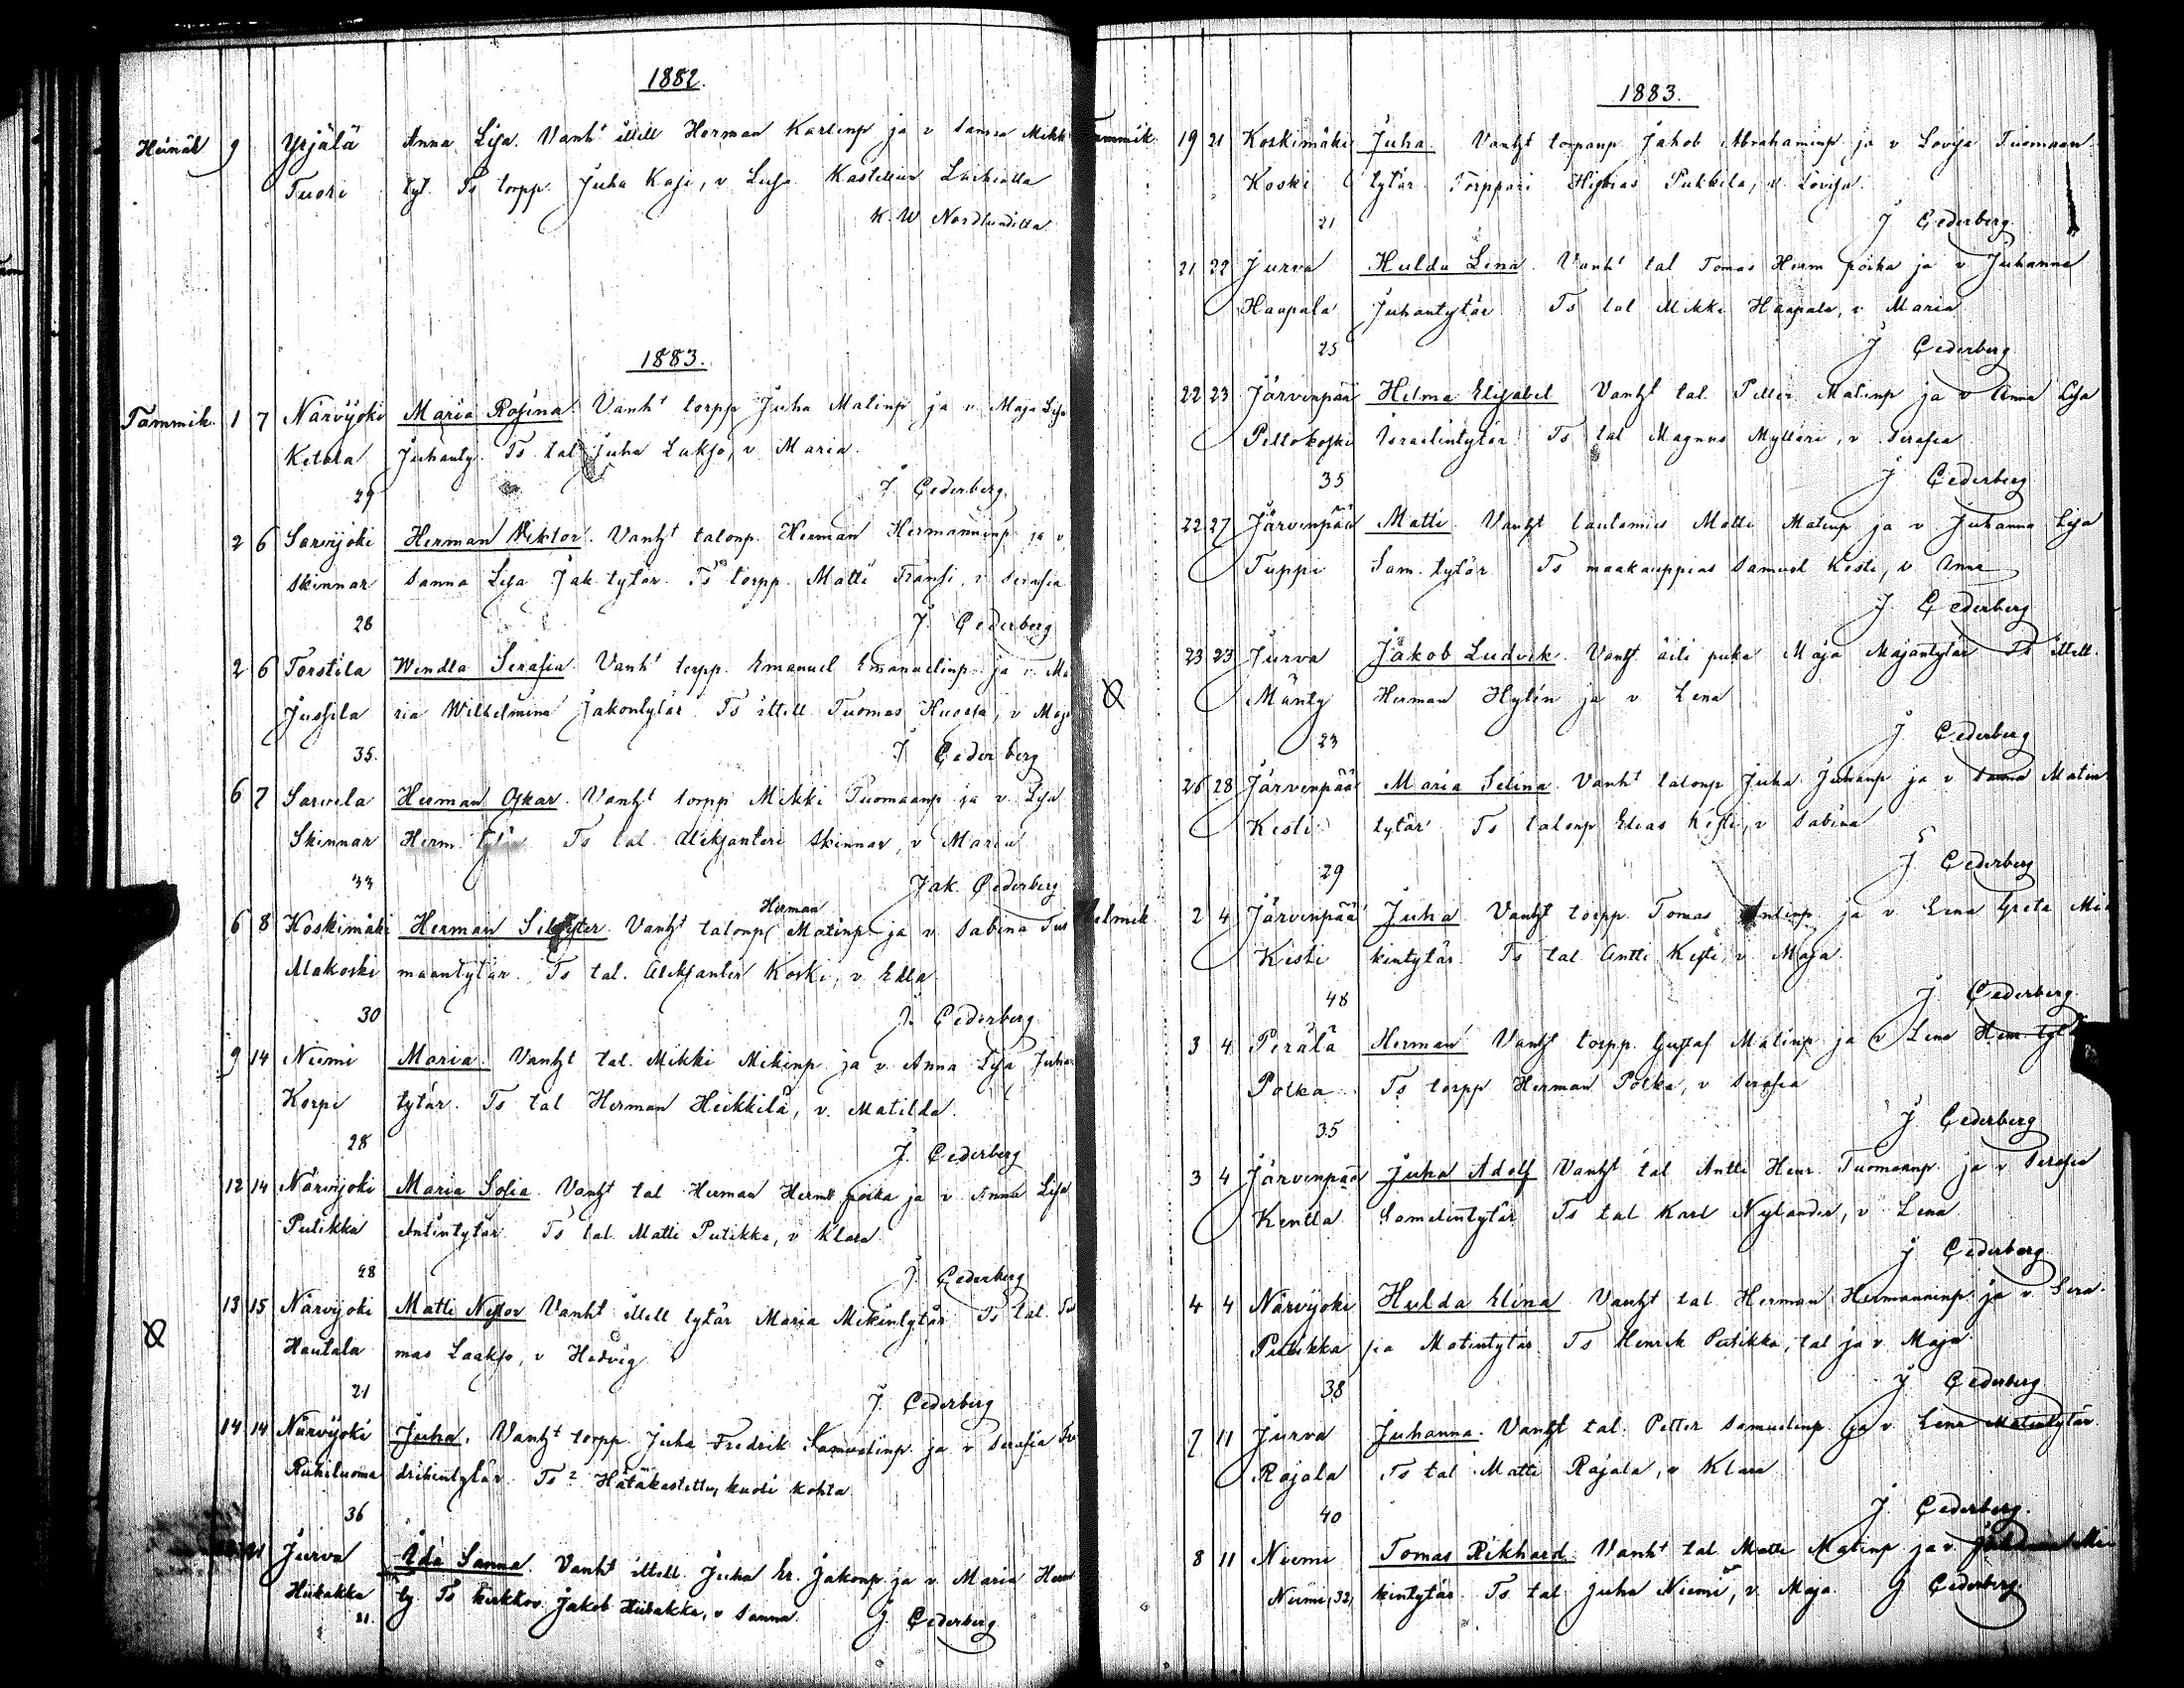 1882.
Heinäk 9 Yrjälä Anna Lisa. Vanht ittell Herman Karlinp ja v Sanna Mikk
Tuori tyt. Ts torpp. Juha Kasi, v Lisa Kastettiin Laihialla
K. W Nordlundilta
1883.
Tammik. 1 7 Närvijoki Maria Rosina. Vanht torpp Juha Matinp ja v. Maja Lisa
Ketola Juhanty. Ts tal Juha Lukso, v Maria.
29 J. Cederberg
2 6 Sarvijoki Herman Viktor. Vanht talonp. Herman Hermanninp ja v
Skinnar Sanna Lisa Jak. tytär. Ts torpp. Matti Fransi, v Serafia
28 J. Cederberg
2 6 Torstila Wendla Serafia. Vanht torpp. Emanuel Emanuelinp ja v. Ma
Jussila ria Wilhelmina Jakontytär Ts ittell Tuomas, v Maja
35. J Cederberg
6 7 Sarvela Herman Oskar. Vanht torpp Mikki Tuomaanp ja v. Lisa
Skinnar Herm. tytär Ts tal. Aleksanteri Skinnar, v Maria
33 Jak. Cederberg
Herman
6 8 Koskimäki Herman Silvester. Vanht talonp Matinp ja v. Sabina Tuo
Alakoski maantytär. Ts tal. Aleksanteri Koski, v Edla
30 J. Cederberg
9 14 Niemi Maria. Vanht tal. Mikki Mikinp ja v. Anna Lisa Juhan
Korpi tytär. Ts tal Herman Heikkilä, v. Matilda.
28 J. Cederberg
12 14 Närvijoki Maria Sofia. Vanht tal Herman Herm poika ja v Anna Lisa
Putikka Antintytär Ts tal. Matti Putikka, v Klara
28 J. Cederberg
13 15 Närvijoki Matti Nestor Vanht ittell tytär Maria Mikintytär Ts tal. Tuo
Hautala mas Laakso, v Hedvig
21 J. Cederberg
14 14 Närvijoki Juha. Vanht torpp. Juha Fredrik Samuelinp ja v Serafia Fre
Rukiluoma drikintytär. Ts? Hätäkastettu, kuoli kohta
36
21 Jurva Ida Sanna. Vanht ittell. Juha Er. Jakonp ja v. Maria Herm
Hiibakka ty Ts kirkkov. Jakob Hiibakka, v Sanna. J. Cederberg
21.
1883.
Tammik. 19 21 Koskimäki Juha. Vanht torpanp Jakob Abrahaminp ja v Lovisa Tuomaan
Koski tytär Torppari Pukkila, v. Lovisa.
21 J Cederberg
21 22 Jurva Hulda Lina. Vanht tal Tomas Herm poika ja v Juhanna
Haapala Juhantytär Ts tal Mikki Haapala, v Maria
25 J Cederberg
22 23 Järvenpää Helma Elisabet Vanht tal. Petter Matinp ja v Anna Lisa
Peltokoski Israelintytär. Ts tal Magnus Mylläri, v Serafia
35 J Cederberg
22 27 Järvenpää Matti. Vanht lautamies Matti Matinp ja v Juhanna Lisa
Tuppi Sam. tytär Ts maakauppias Samuel Kesti, v Anna
J. Cederberg
23 23 Jurva Jakob Ludvik. Vanht. äiti piika Maja Majantytär Ts ittell.
Mänty Herman Hytin ja v Lena
23 J Cederberg
26 28 Järvenpää Maria Selina Vanht talonp Juha Juhanp ja v Sanna Matin
Kesti tytär Ts talonp Elias Kesti, v Sabina
29 J Cederberg
Helmik. 2 4 Järvenpää Juha Vanht torpp. Tomas Antinp ja v Lena Greta Mi
Kesti kintytär. Ts tal Antti Kesti, v. Maja.
48 J Cederberg.
3 4 Perälä Herman Vanht torpp. Gustaf Matinp ja v Lena Hem tyt
Potka Ts torpp Herman Potka, v Serafia
35 J Cederberg
3 4 Järvenpää Juha Adolf Vanht tal Antti Henr. Tuomaanp ja v Serafia
Kentta Samelintytär Ts tal Karl Nylander, v Lena
J Cederberg
4 4 Närvijoki Hulda Elina Vanht tal Herman Hermanninp ja v. Sera-
Putikka fia Matintytär Ts Henrik Putikka, tal ja v Maja
38 J Cederberg
7 11 Jurva Juhanna. Vanht tal. Petter Samuelinp ja v Lena Matintytär.
Rajala Ts tal Matti Rajala, v Klara
40 J Cederberg.
8 11 Niemi Tomas Rikhard. Vanht tal Matti Matinp ja v. Juhanna Mi
Niemi, 32, kintytär. Ts. tal Juha Niemi, v. Maja. J Cederberg.